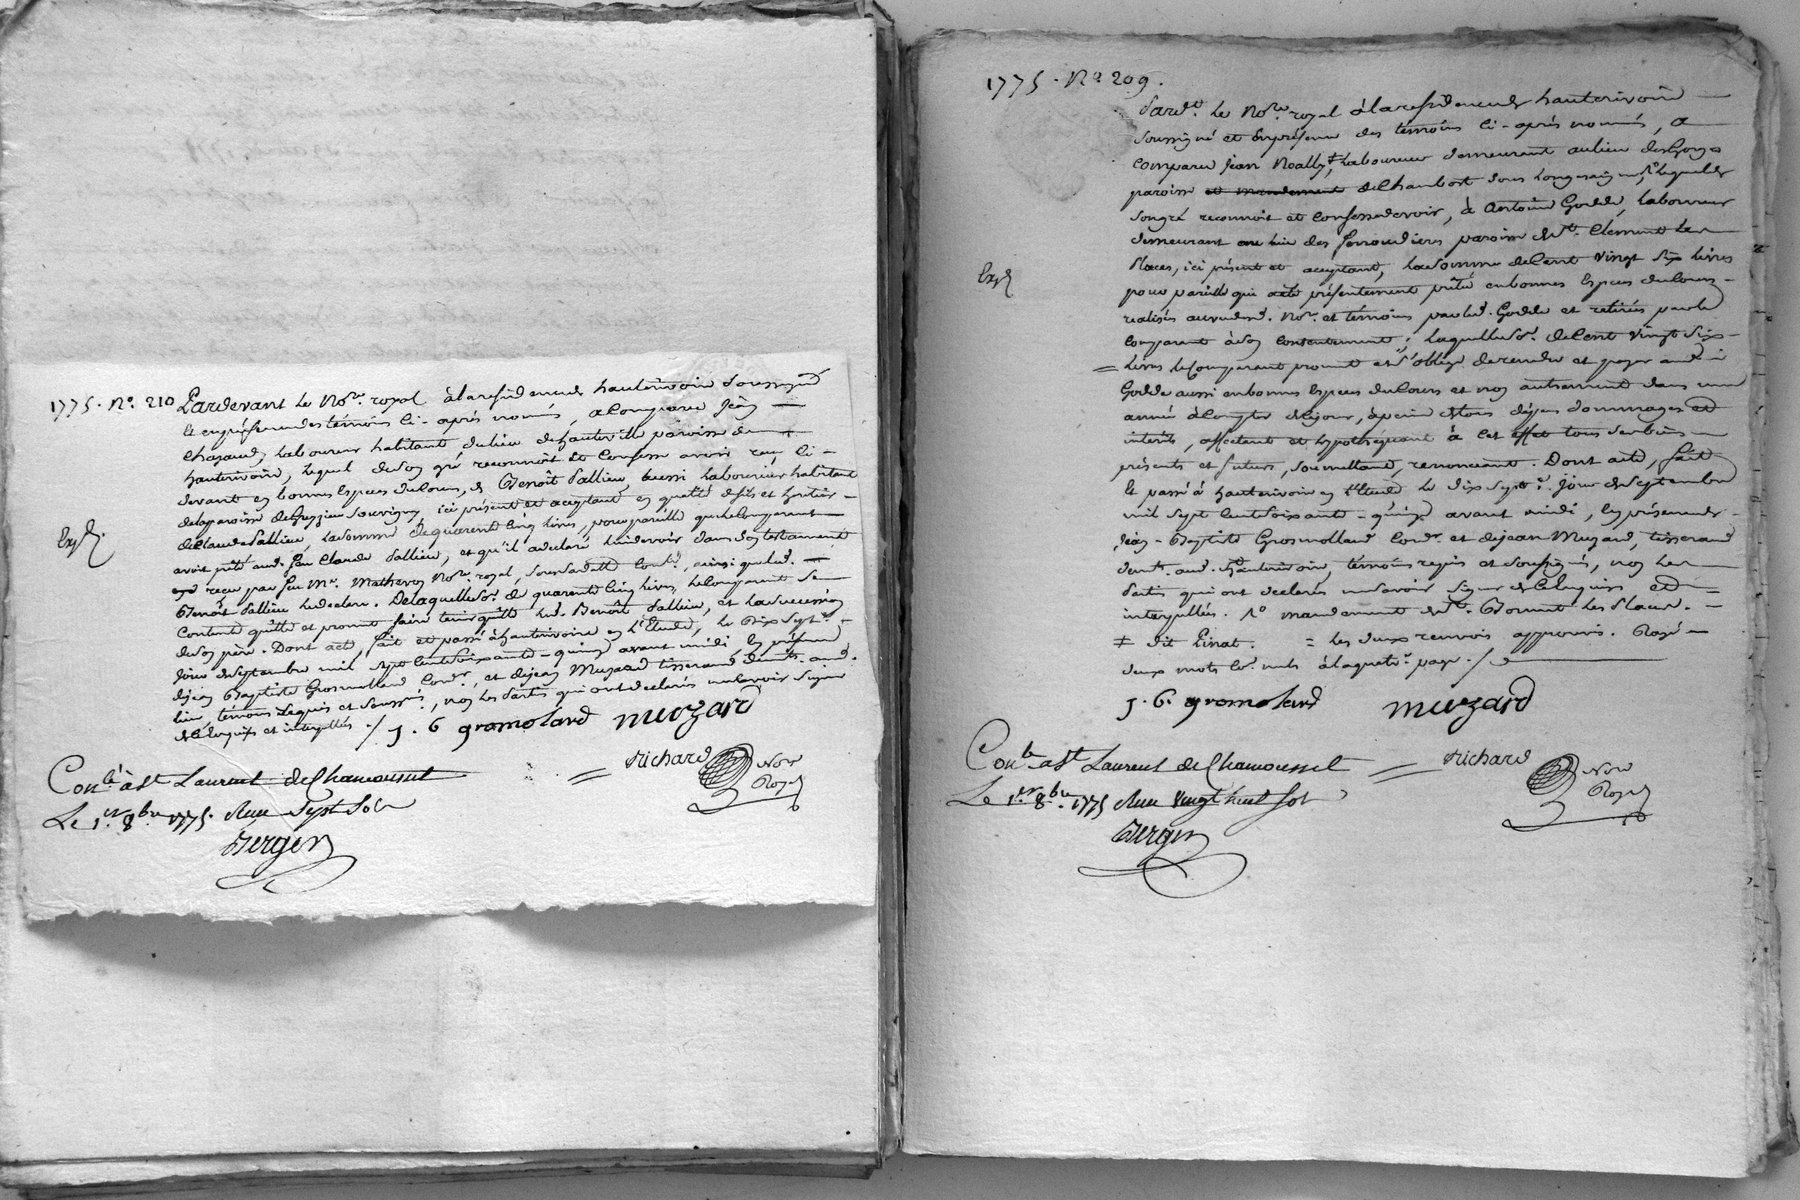 1775. No. 210 Pardevant le Nore. royal à la résidence d'hauterivoire soussigné
et en présence des témoins ci-après només, a comparu Jean
Chazaud, laboureur habitant du lieu de hauteville paroisse de
hauterivoire, lequel de son gré reconnoit et confesse avoir reçu ci-
devant en bonnes Espèces de Cours, de Benoît Pallieu, aussi laboureur habitant
de la paroisse de Souvigny, ici présent et acceptant en qualité de fils et héritier
de Claude Pallieu, la somme de quarente cinq livres, pour pareille que le Comparant
avoit prêté aud. feu Claude Pallieu, et qu'il a déclaré lui devoir dans son testament
reçu par feu Me. Mathevon Nore. royal, ainsi que led.
Benoît Pallieu le declare. De laquelle so. de quarente cinq livres le Comparant se
Contente quitte et promet faire tenir quitte led. Benoît Pallieu, et la succession
de son père. Dont acte, fait et passé à hauterivoire en l'Etude, le Dix sept.
Jour de Septembre mil sept cent soixante-quinze avant midi, en présence
de Jean Baptiste Grosmolland Cordr. et de Jean Muzard tisserand demts. aud.
lieu, témoins requis et soussignés, non les Parties qui ont déclaré ne savoir signer
de ce Enquis et interpellés ./
J. B gromolard muzard
Conlé. à St Laurent de Chamousset
Le 1er. 8bre. 1775. Reçu Sept Sols
Berger
Richard Nore
Royal
Exp.
1775. No. 209.
Pardt. le Nore. royal à la résidence d'hauterivoire
soussigné et en présence des témoins ci-après només, a
comparu Jean Noally,‡ laboureur demeurant au lieu des Gorges
paroisse et mandement de Chambost sous Longessaigne, lequel de
son gré reconnoit et confesse devoir, à Antoine Godde, laboureur
demeurant au lieu des ferroudiers paroisse de St. Clément les
Places, ici présent et acceptant, la somme de Cent vingt six livres
pour pareille qui a été présentement prêté en bonnes Espèces de Cours
realisés au vu desd. Nore. et témoins par led. Godde et retirés par le
comparant à son contentement; laquelle so. de Cent vingt six
= livres le Comparant promet et s'oblige de rendre et payer aud.
Godde aussi en bonnes Espèces de Cours et non autrement dans une
année à Compter de ce jour, à peine de tous dépens dommages et
interêts, affectant et hypothéquant à cet effet tous ses biens
présents et futurs, soumettant, renonceant. Dont acte, fait
et passé à hauterivoire en l'Etude le dix sept. Jour de Septembre
mil sept cent soixante-quinze avant midi, en présence de
Jean-Baptiste Grosmolland Cordr. et de Jean Muzard, tisserand
demts. aud. hauterivoire, témoins requis et soussignés, non les
Parties qui ont déclarés ne savoir signer de ce Enquis et
interpellés.
‡ dit Pinat. = les deux renvois approuvés. Rayé
deux mots
J. B. gromolard muzard
Conlé à St Laurent de Chamousset
Le 1er. 8bre. 1775 Reçu Vingt huit Sols
Berger
Richard Nore
Royal
Exp.